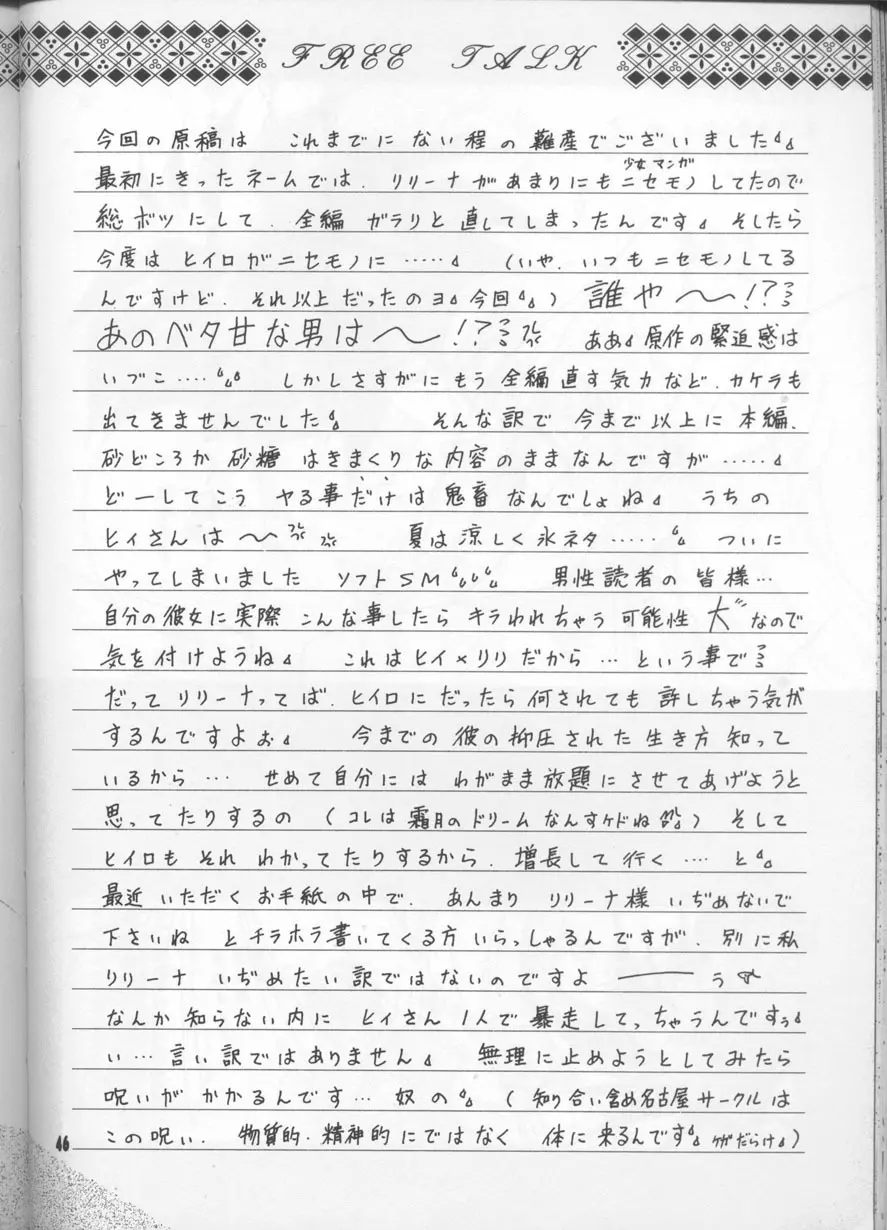 FREE TALK
今回の原稿は これまでにない程の難産でございました
少女マンガ
最初にきったネームでは、リリーナがあまりにもニセモノしてたので
総ボツにして、全編 ガラリと直してしまったんです そしたら
今度は ヒイロがニセモノに …… (いや、いつもニセモノしてる
んですけど、それ以上だったのヨ 今回) 誰や〜!?
あのベタ甘な男は〜!? ああ 原作の緊迫感は
いづこ…。 しかしさすがにもう 全編直す気力など、カケラも
出てきませんでした そんな訳で 今まで以上に本編、
砂どころか 砂糖 はきまくりな内容のままなんですが……
どーしてこう ヤる事だけは鬼畜なんでしょね うちの
ヒイさんは〜 夏は涼しく氷ネタ…… ついに
やってしまいました ソフトSM 男性読者の皆様…
自分の彼女に実際 こんな事したら キラわれちゃう 可能性 大 なので
気を付けようね これはヒイ×リリだから… という事で
だって リリーナってば、ヒイロにだったら何されても 許しちゃう気が
するんですよぉ 今までの 彼の抑圧された生き方 知って
いるから… せめて自分には わがまま放題にさせてあげようと
思ってたりするの (コレは 霜月のドリームなんすケドね) そして
ヒイロも それ わかってたりするから、増長して行く… と
最近 いただくお手紙の中で、あんまり リリーナ様 いぢめないで
下さいね とチラホラ書いてくる方 いらっしゃるんですが、別に私
リリーナ いぢめたい訳ではないのですよ ── う
なんか 知らない内に ヒイさん 1人で 暴走してっちゃうんですぅ
い… 言い訳ではありません 無理に止めようとしてみたら
呪いが かかるんです… 奴の (知り合い含め名古屋サークルは
この呪い、物質的・精神的にではなく 体に来るんです ケガだらけ)
46